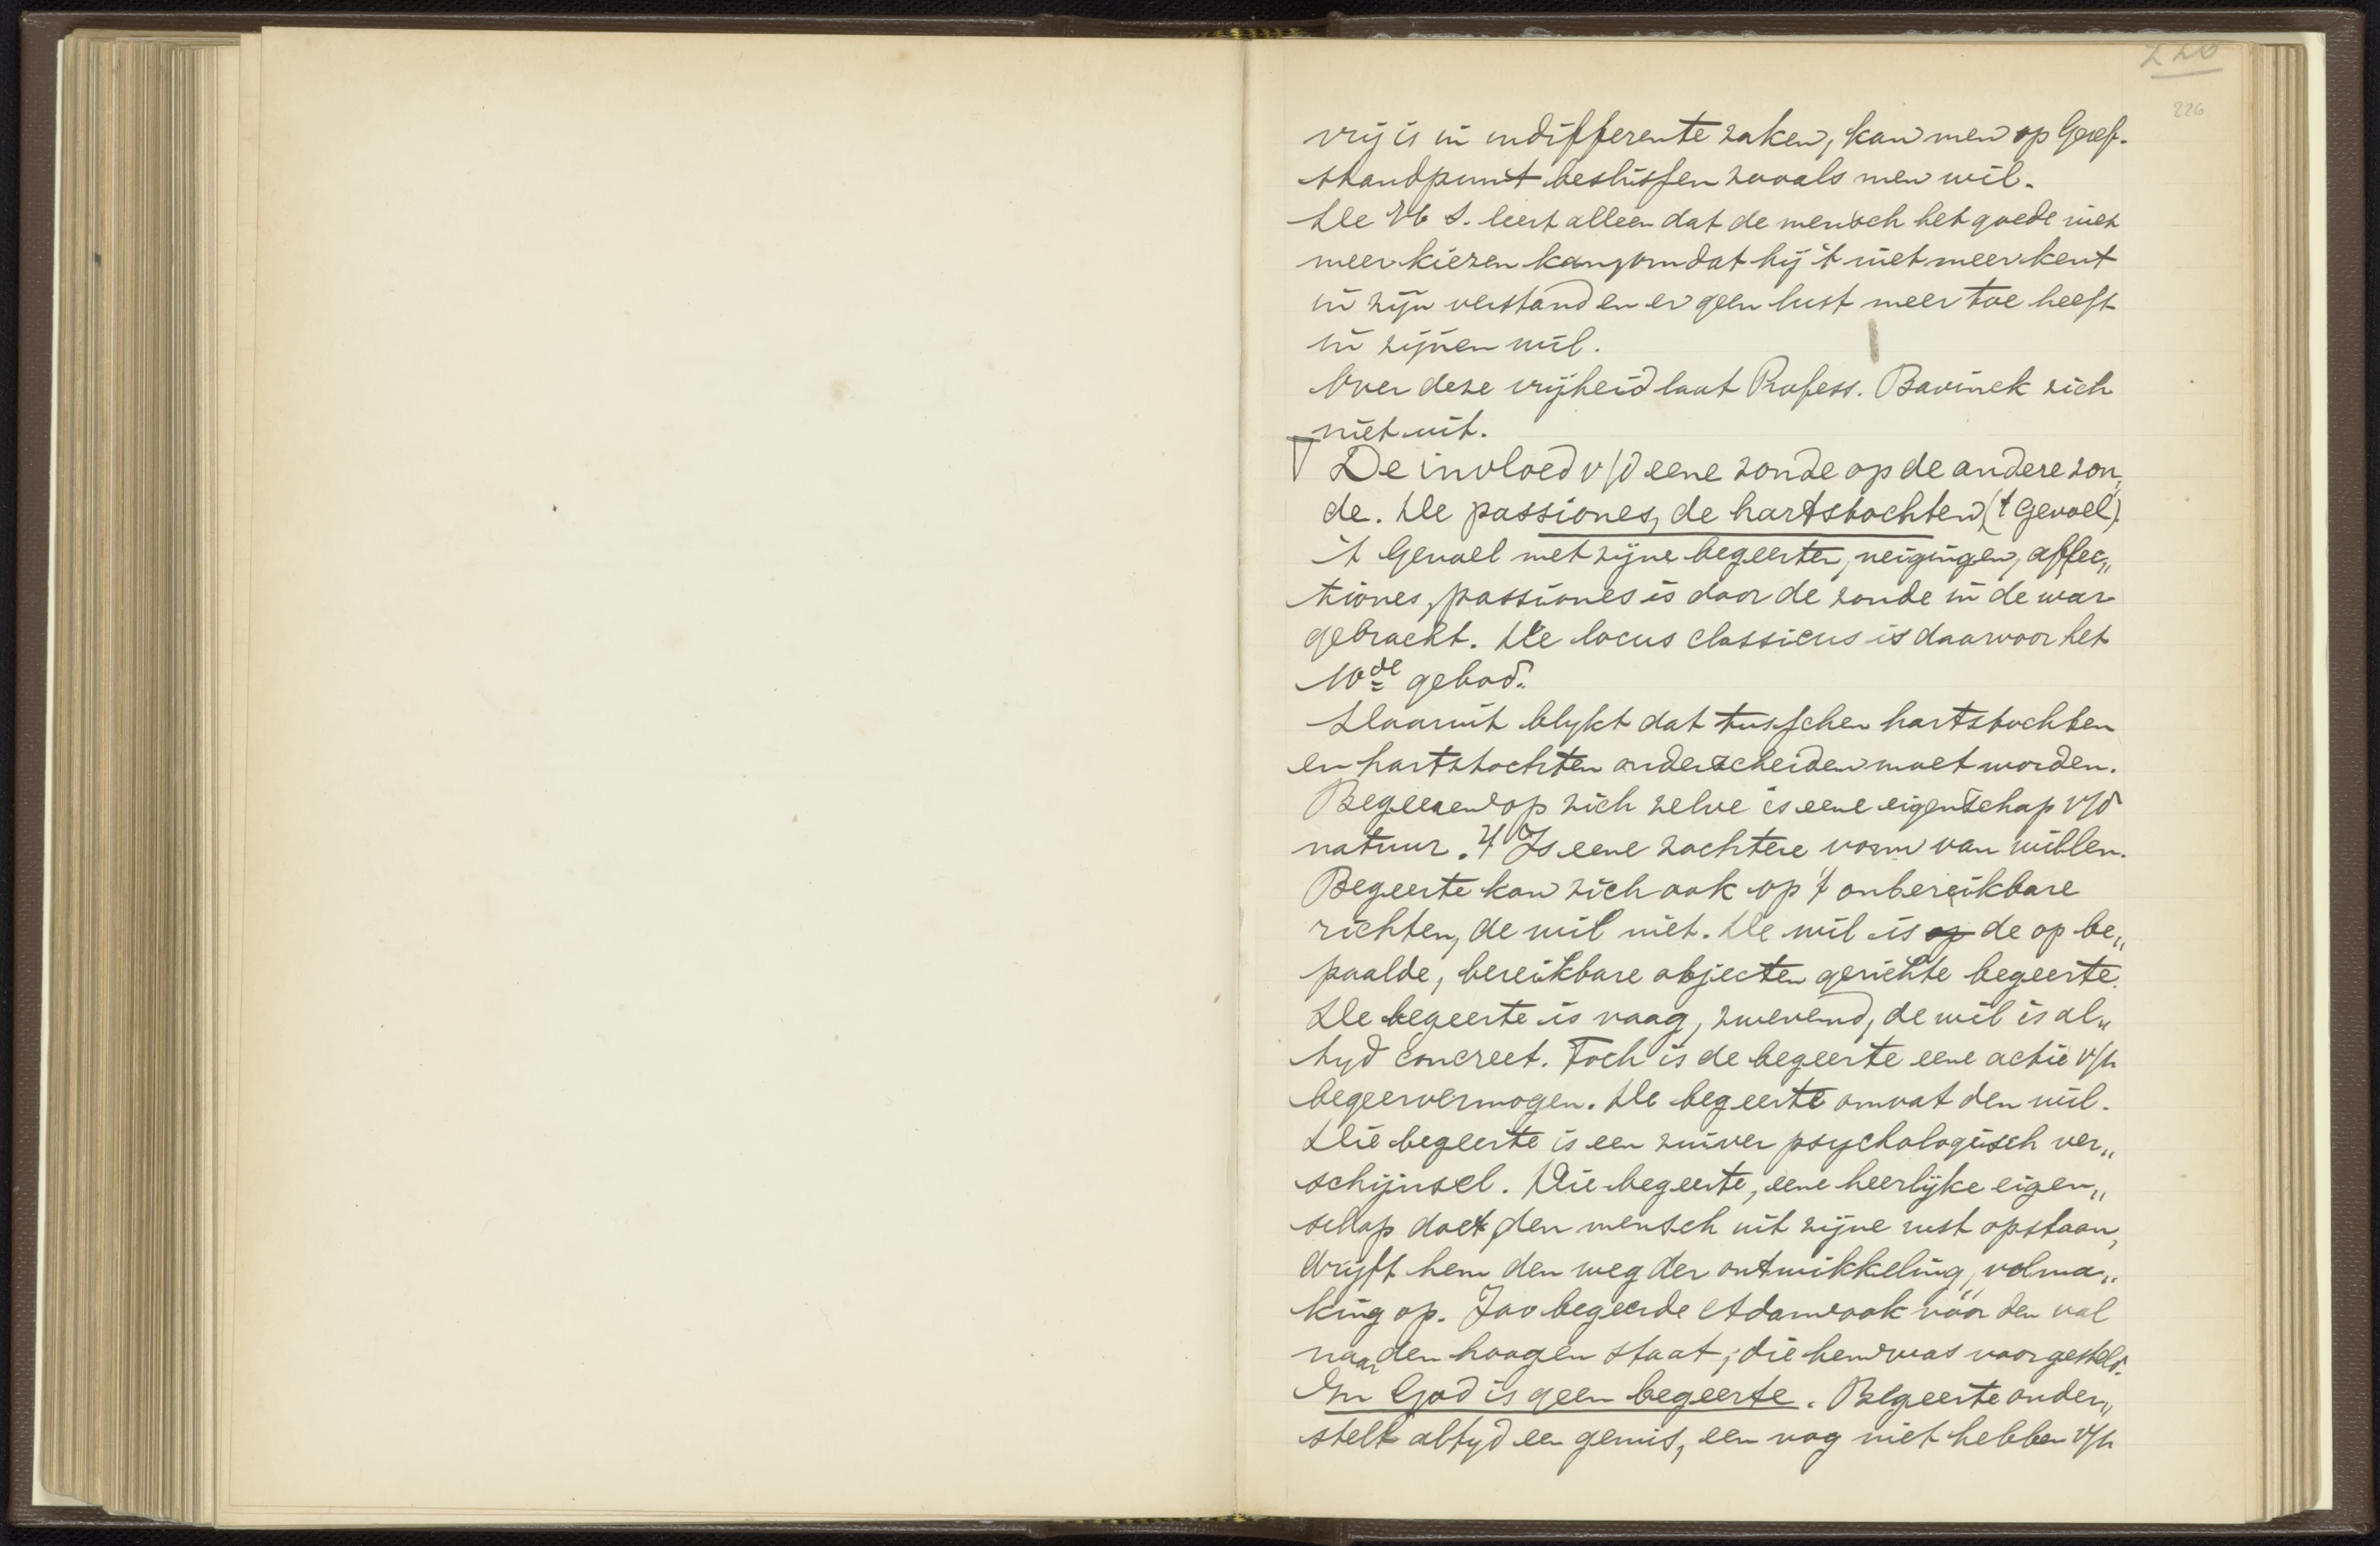 220
226
vrij is in indifferente zaken, kan men op Geref.
standpunt beslissen zooals men wil.
De H. S. leert alleen dat de mensch het goede niet
meer kiezen kan, omdat hij 't niet meer kent
in zijn verstand en er geen lust meer toe heeft
in zijnen wil.
Over deze vrijheid laat Profess. Bavinck zich
niet uit.
De invloed v/d eene zonde op de andere zon„
de. De passiones, de hartstochten ('t Gevoel).
't Gevoel met zijne begeerten, neigingen, affec„
tiones, passiones is door de zonde in de war
gebracht. De locus classicus is daarvoor het
10de gebod.
Daaruit blykt dat tusschen hartstochten
en hartstochten onderscheiden moet worden.
Begeeren op zich zelve is eene eigenschap v/d
natuur. 't Is eene zachtere vorm van willen.
Begeerte kan zich ook op 't onbereikbare
richten, de wil niet. De wil is op de op be„
paalde, bereikbare objecten gerichte begeerte.
De begeerte is vaag, zwevend, de wil is al„
tyd concreet. Toch is de begeerte eene actie v/h
begeervermogen. De begeerte omvat den wil.
Die begeerte is een zuiver psychologisch ver„
schijnsel. Die begeerte, eene heerlijke eigen„
schap doet den mensch uit zijne rust opstaan,
drijft hem den weg der ontwikkeling, volma„
king op. Zoo begeerde Adam ook vóór den val
naar den hoogen staat, die hem was voorgesteld.
In God is geen begeerte. Begeerte onder„
stelt altyd een gemis, een nog niet hebben v/h